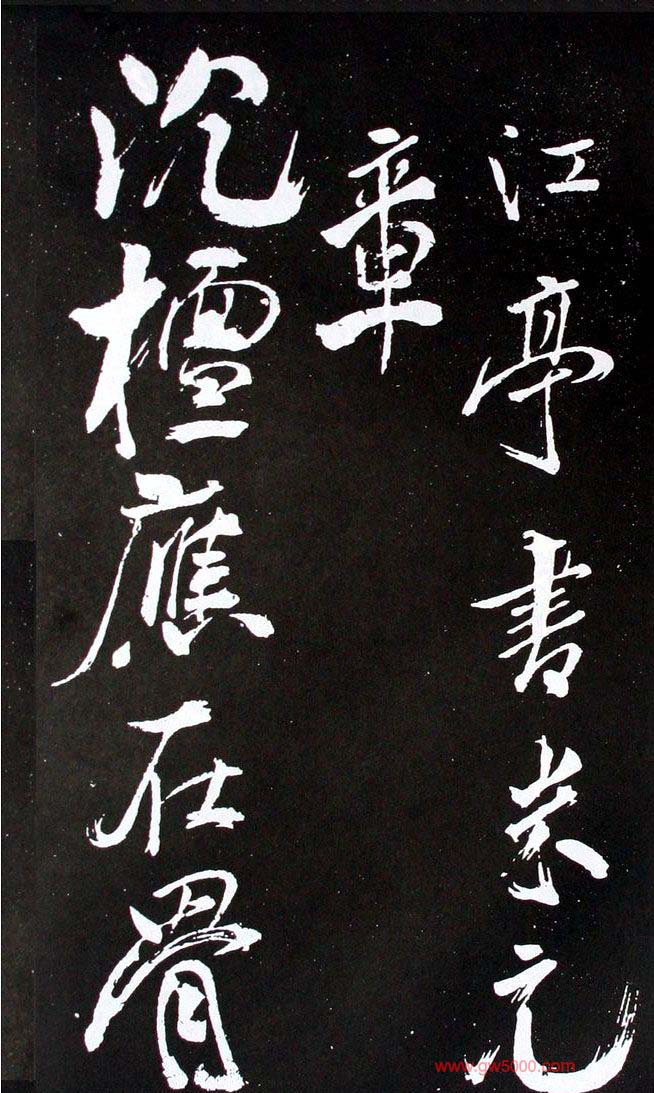 江亭書米元
章
沉檀應在骨
www.gw5000.com